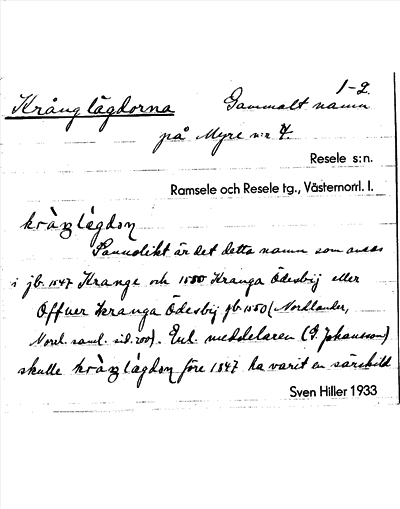 1-2.
Kränglägdorna Gammalt namn
på Myre n:r 4
Resele s:n.
Ramsele och Resele tg., Västernorrl. l.
Sannolikt är det detta namn som avses
i jb. 1547 Krange och 1550 Kranga Ödesbij eller
Offuer kranga Ödesbij jb. 1550 (Nordlander,
Norrl. saml. sid. 200). Enl. meddelaren (G. Johansson)
skulle före 1847 ha varit en särskild
Sven Hiller 1933